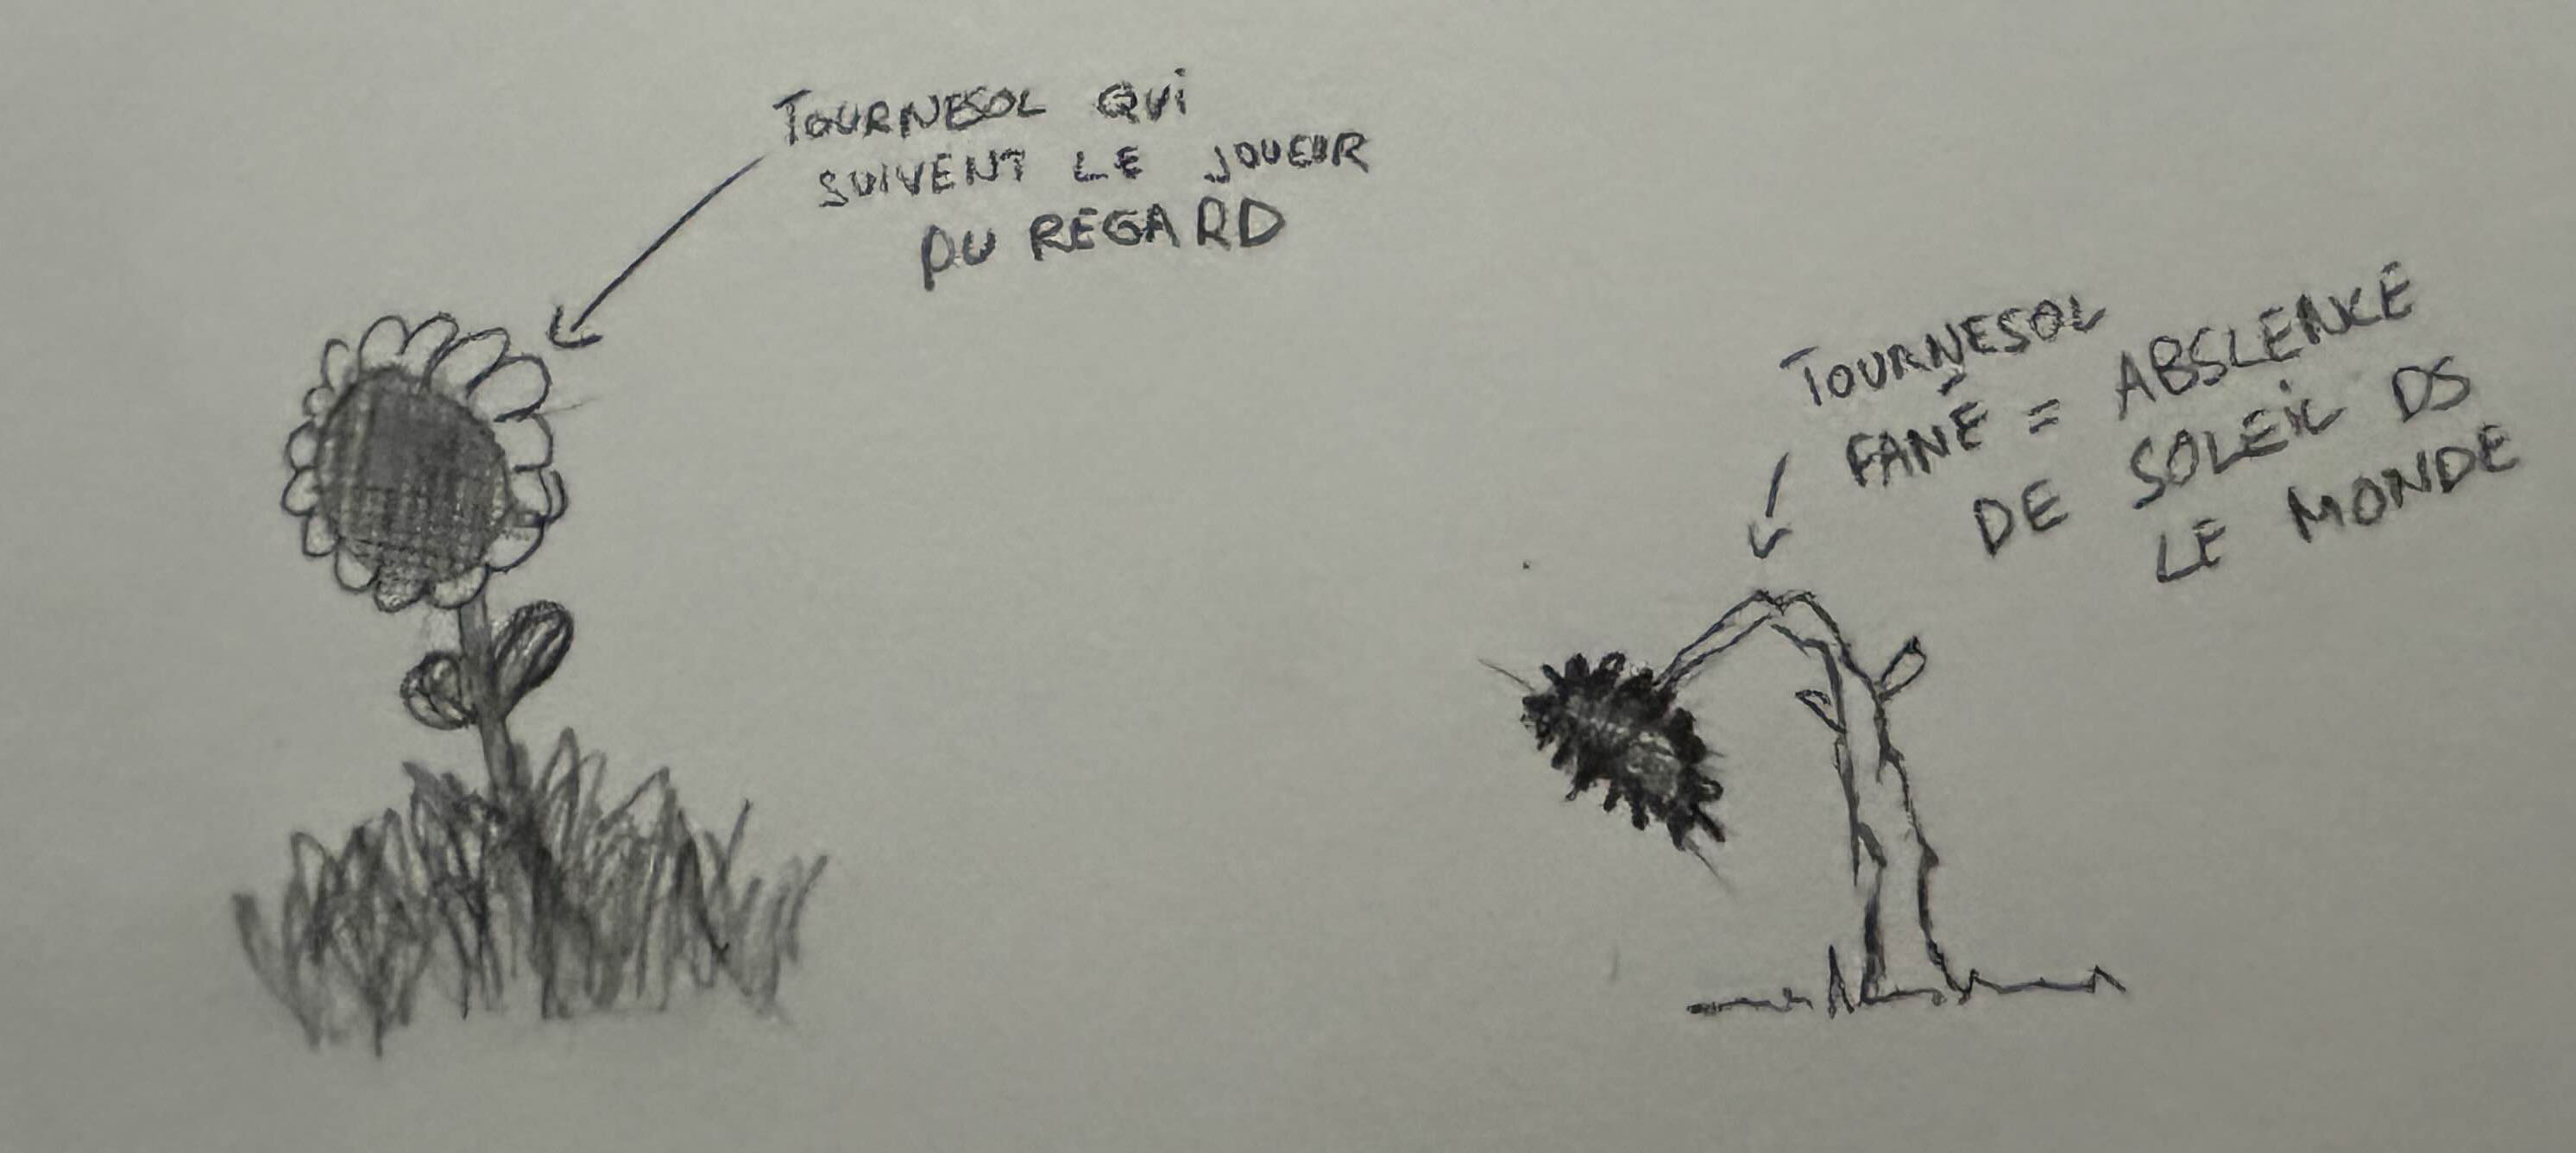 TOURNESOL QUI
SUIVENT LE JOUEUR
DU REGARD
TOURNESOL
FANÉ = ABSLENCE
DE SOLEIL DS
LE MONDE